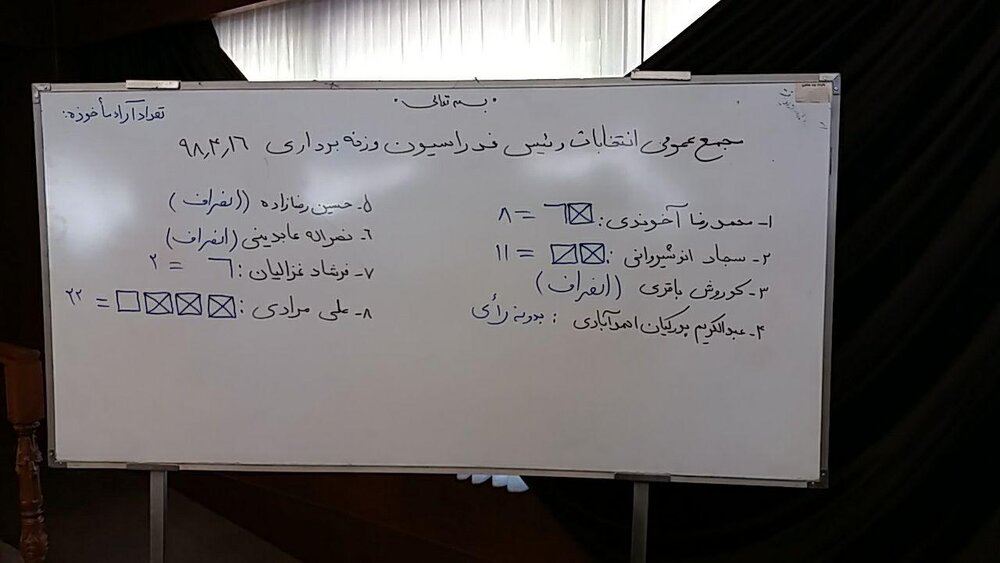 بسمه تعالی
تعداد آراء مأخوذه:
مجمع عمومی انتخابات رئیس فدراسیون وزنه برداری ۹۸٫۴٫۱۶
۱- محمدرضا آخوندی: = ۸
۲- سجاد انوشیروانی: = ۱۱
۳- کوروش باقری (انصراف)
۴- عبدالکریم پورکیان احمدآبادی: بدون رأی
۵- حسین رضازاده (انصراف)
۶- نصراله عابدینی (انصراف)
۷- فرشاد غزالیان: = ۲
۸- علی مرادی: = ۲۲